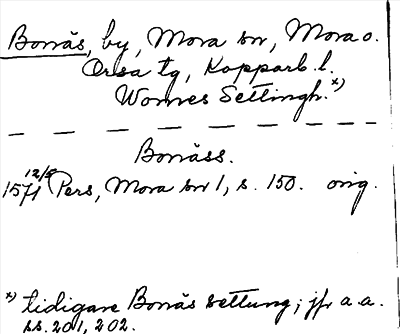 Bonäs, by, Mora sn, Mora o.
Orsa tg, Kopparb. l.
Womes Settingh. x)
Bonäss.
1571 12/5 Pers, Mora sn 1, s. 150. orig.
x) tidigare Bonäs settung; jfr a.a.
ss. 201, 202.